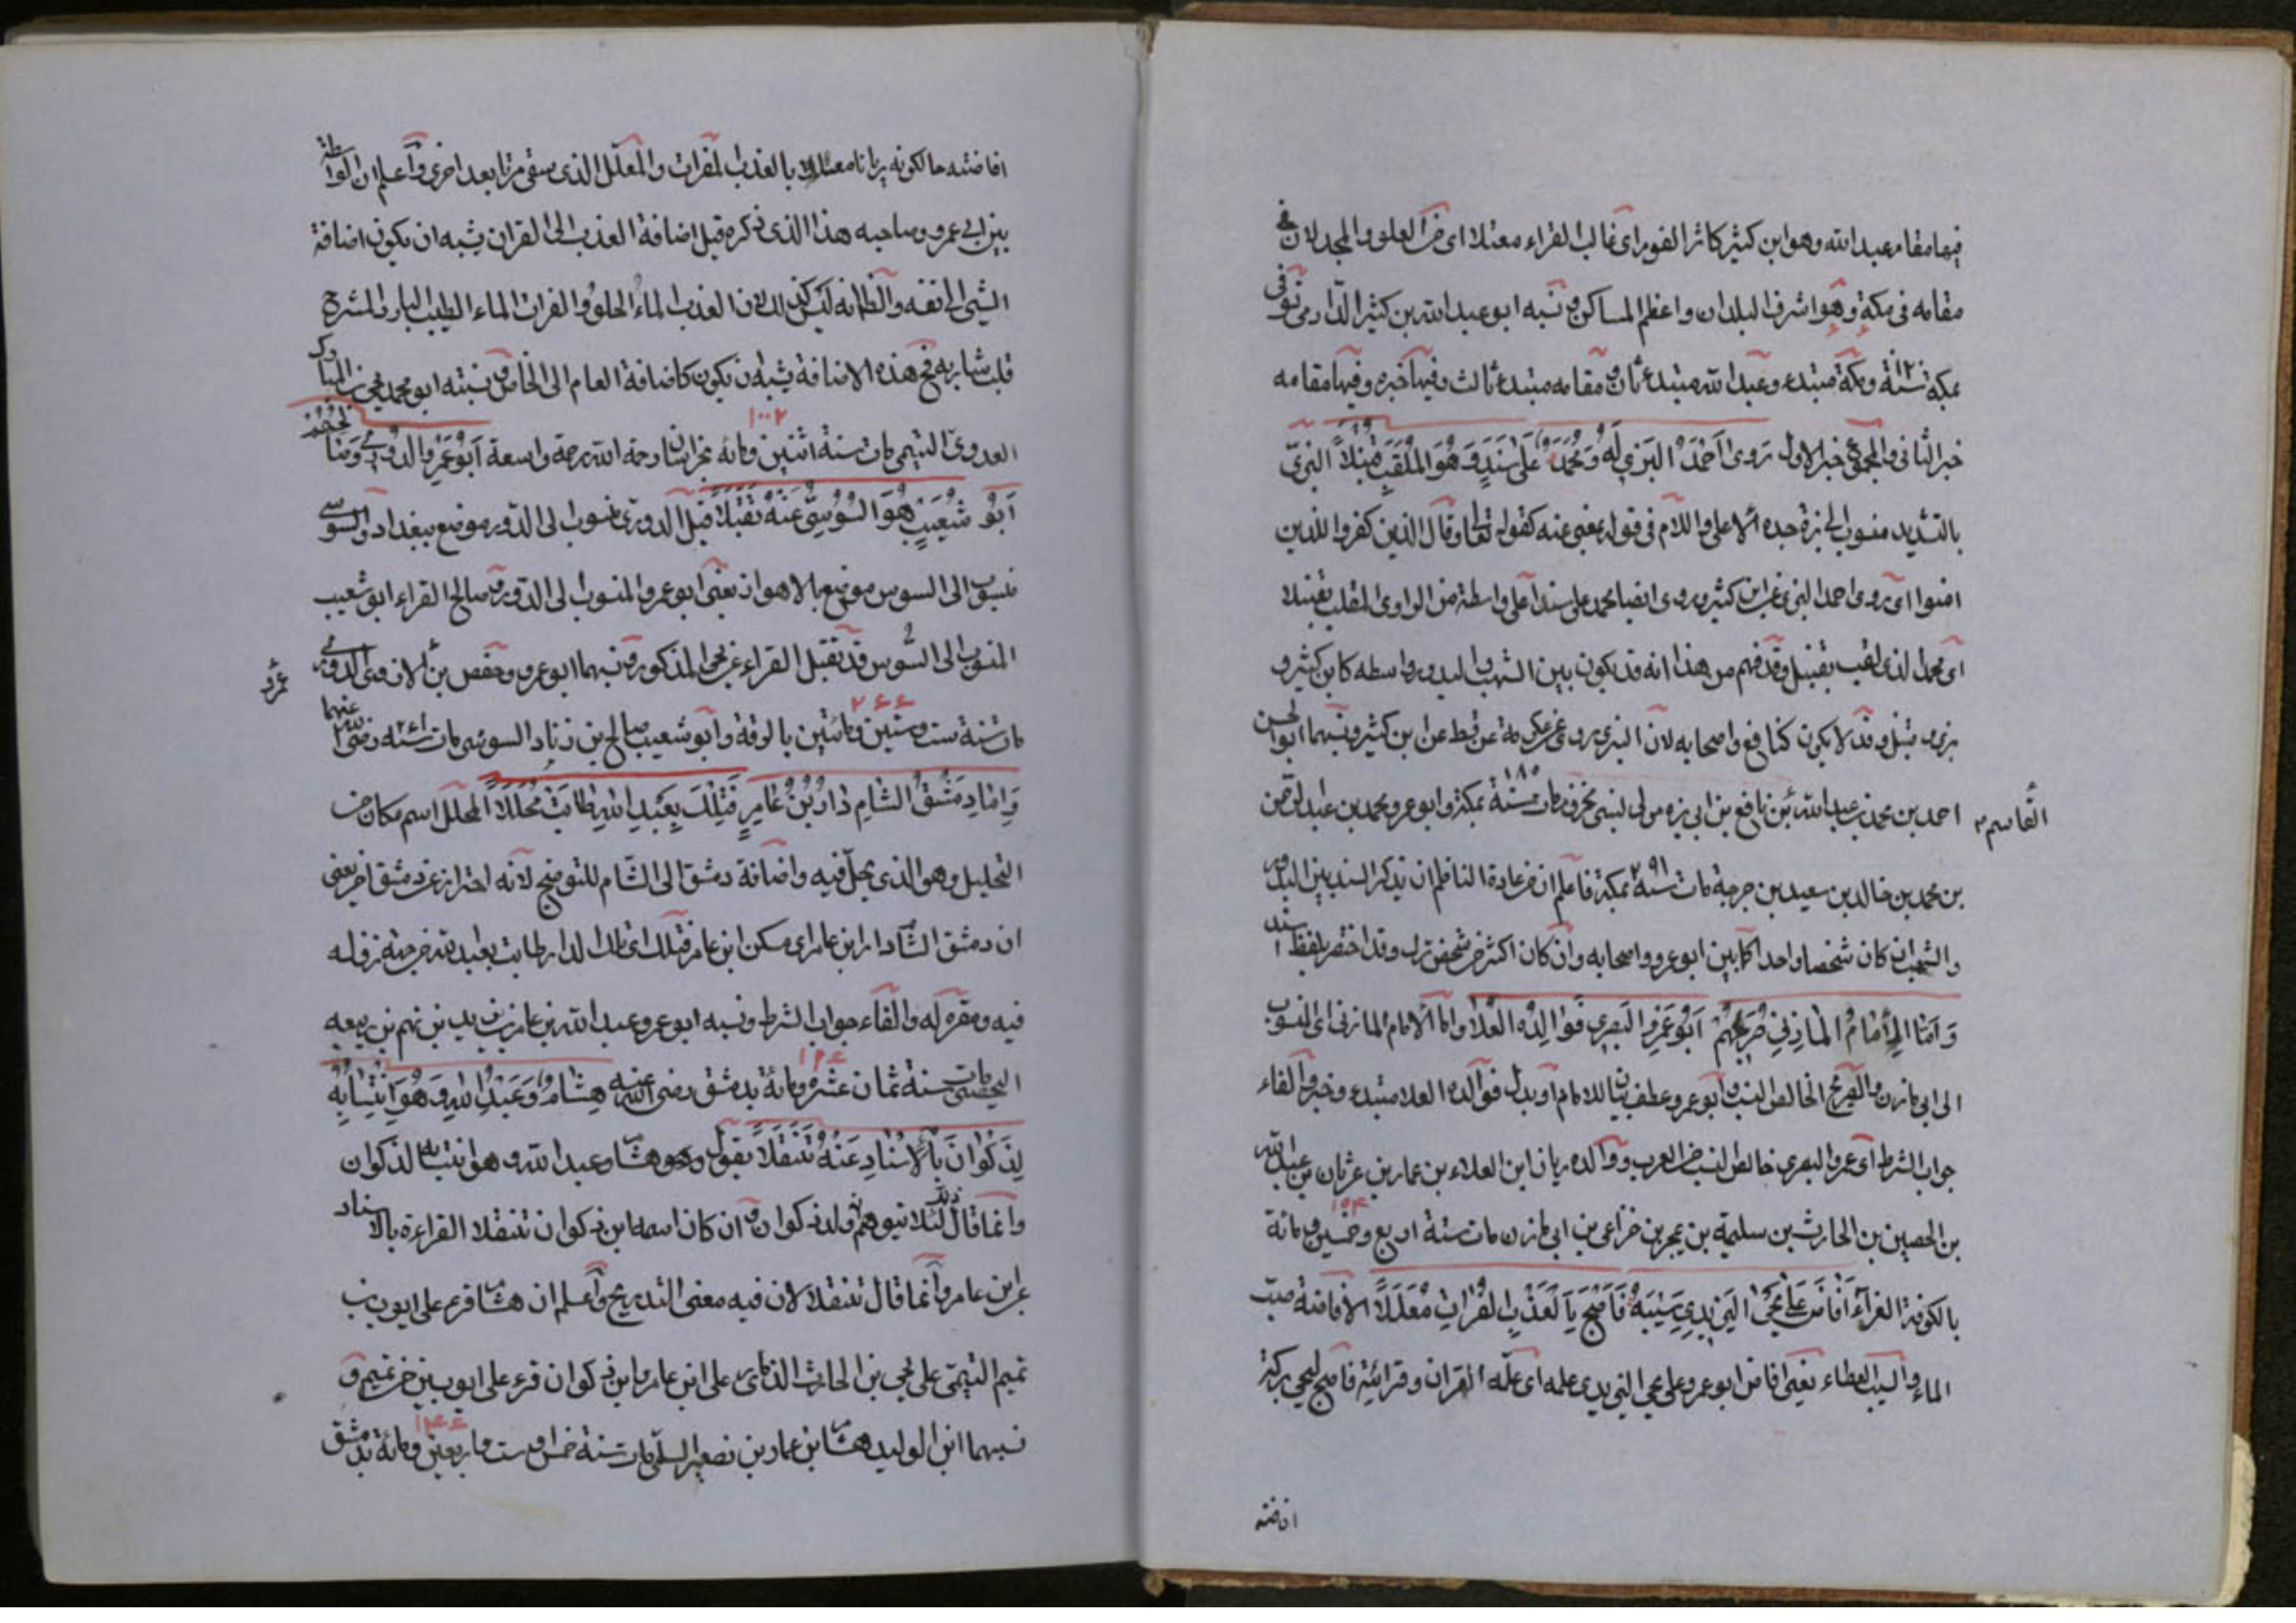 فيها مقام عبدالله وهو ابن كثير كاثر القوم اى غالب القراء معتلا اى فى العلو والمجد لان فى
مقامه فى مكة وهو اشرف البلدان واعظم المساكن ونسبه ابو عبدالله بن كثير الدارمى توفى
بمكة سنة ١٢٠ ومكة مبتدء وعبدالله مبتدء ثان و مقامه مبتدء ثالث وفيها خبره وفيها مقامه
خبر الثانى والمجموع خبر الاول رَوى اَحْمَدُ البَزّى لَهُ وَمُحَمَّدٌ عَلى سَنَدٍ وَهُوَ المُلَقَّبُ قُنْبُلاً البزىّ
بالتشديد منسوب الى بزة جده الاعلى واللام فى قوله بمعنى عنه كقوله تعالى وقال الذين كفروا للذين
امنوا اى روى احمد البزى عن ابن كثير وروى ايضا محمد على سند اعلى واسطة من الراوى الملقب بقنبلا
اى محمد الذى لقب بقنبل وقد فهم من هذا انه قد يكون بين الشهب والبدور واسطه كابن كثير و
بزى و قنبل وقد لا يكون كنافع واصحابه لان البزى روى عن عكرمة عن قسط عن ابن كثير ونسبهما ابو الحسن
احمد بن محمد بن عبدالله بن نافع بن ابى بزه مولى لبنى مخزوم مات سنة بمكة وابو عمرو محمد بن عبدالرحمن
القاسم
بن محمد بن خالد بن سعيد بن جرجة مات سنة ٢٩١ بمكة فاعلم ان من عادة الناظم ان يذكر السند بين البدور
والشهب ان كان شخصا واحدا كما بين ابو عمرو واصحابه وان كان اكثر من شخص ترك وقد اختصر بلفظ سند
وَاَمّا الإمَامُ المَازِنِي صَرِيحُهُمْ اَبُو عَمْرٍو البَصْرِي فَوَالِدُهُ العَلا واما الامام المازنى اى المنسوب
الى ابى مازن والصريح الخالص النسب وابو عمرو عطف بيان للامام او بدل فوالده العلا مبتدء وخبر والفاء
جواب الشرط اى عمرو البصرى خالص النسب من العرب ووالده ربان ابن العلاء بن عمار بن عريان بن عبدالله
بن الحصين بن الحارث بن سليمة بن بحر بن خزاعى بن ابى مازن مات سنة اربع وخمسين ومائة
١٥٤
بالكوفة الغراء اَفَاضَ عَلى يَحْيَى اليَزِيدِى سَيْبَهُ فَاَصْبَحَ بِالْعَذْبِ الفُرَاتِ مُعَلَّلاً الافاضة صب
الماء والسيب العطاء يعنى افاض ابو عمرو على يحيى اليزيدى علمه اى علّمه القران وقرائته فاصبح يحيى ببركة
افاضته
افاضته حال كونه ريانا معللا بالعذب الفرات والمعلّل الذى سقى مرة بعد اخرى واعلم ان الواسطة
بين ابى عمرو وصاحبيه هذا الذى ذكره قبل اضافة العذب الى الفرات يشبه ان يكون اضافة
الشئ الى نفسه والظاهر انه ليس كذلك لان العذب الماء الحلو والفرات الماء الطيب البارد المشرح
قلب شاربه فح هذه الاضافة يشبه ان يكون كاضافة العام الى الخاص ونسبته ابو محمد يحيى بن المبارك
العدوىّ التيمى مات سنة اثنين ومائه بخراسان رحمة الله رحمة واسعة اَبُو عُمَرَ الدُّورِى وَصَالِحُهُمْ
١٠٠٢
اَبُو شُعَيْبٍ هُوَ السُّوسِىّ عَنْهُ تَقَبَّلاَ قيل الدورى منسوب الى الدور موضع ببغداد والسوسى
منسوب الى السوس موضع بالاهواز يعنى ابو عمرو المنسوب الى الدور وصالح القراء ابو شعيب
المنسوب الى السوس قد تقبل القراء عن يحيى المذكور ونسبهما ابو عمرو وحفص بن الازدى الدورى
عمرو
مات سنة ست وستين ومائتين بالرقة وابو شعيب صالح بن زياد السوسى مات سنه رضى الله عنهما
٢٤٤
وَاَمّا دِمَشْقُ الشّامِ دَارُ بْنُ عَامِرٍ فَتِلْكَ بِعَبْدِ اللهِ طَابَتْ مُحَلَّلاً المحلل اسم مكان من
التحليل وهو الذى يحلّ فيه واضافة دمشق الى الشّام للتوضيح لانه احتراز عن دمشق اخر يعنى
ان دمشق الشام دار ابن عامر اى مسكن ابن عامر فتلك اى تلك الدار طابت بعبدالله من جهة نزوله
فيه ومقره له والفاء جواب الشرط ونسبه ابو عمرو عبدالله بن عامر بن يزيد بن تميم بن ربيعه
اليحصبى مات سنة ثمان عشرة ومائة بدمشق رضى الله عنه هِشَامٌ وَعَبْدُ اللهِ وَهُوَ انْتِسَابُهُ
لِذَكْوَانَ بِالْاِسْنَادِ عَنْهُ تَنَقَّلاَ يقول وهو هشام وعبدالله وهو انتسابه لذكوان
وانما قال ذلك لئلا يتوهم ولد ذكوان و ان كان اسمه ابن ذكوان تنقلا القراءة بالاسناد
عن ابن عامر وانما قال تنقلا لان فيه معنى التدريج واعلم ان هشام قرء على ايوب بن
تميم التيمى على يحيى بن الحارث الذمارى على ابن عامر وابن ذكوان قرء على ايوب بن تميم و
نسبهما ابو الوليد هشام بن عمار بن نصير السلمى مات سنة خمس وست واربعين ومائة بدمشق